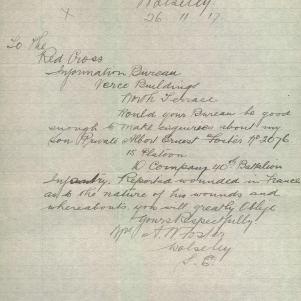 Wolseley.
26 11 17
x
To The
Red Cross
Information Bureau
Verco Buildings
North Terrace
Would your Bureau be good
enough to make enquiries about my
son Private Albert Ernest Foster No 2676
15 Platoon
D Company 40th Battalion
Infantry. Reported wounded in France
as to the nature of his wounds and
whereabouts you will greatly oblige
Yours Respectfully
Mrs A. W Foster
Wolseley
S. E.